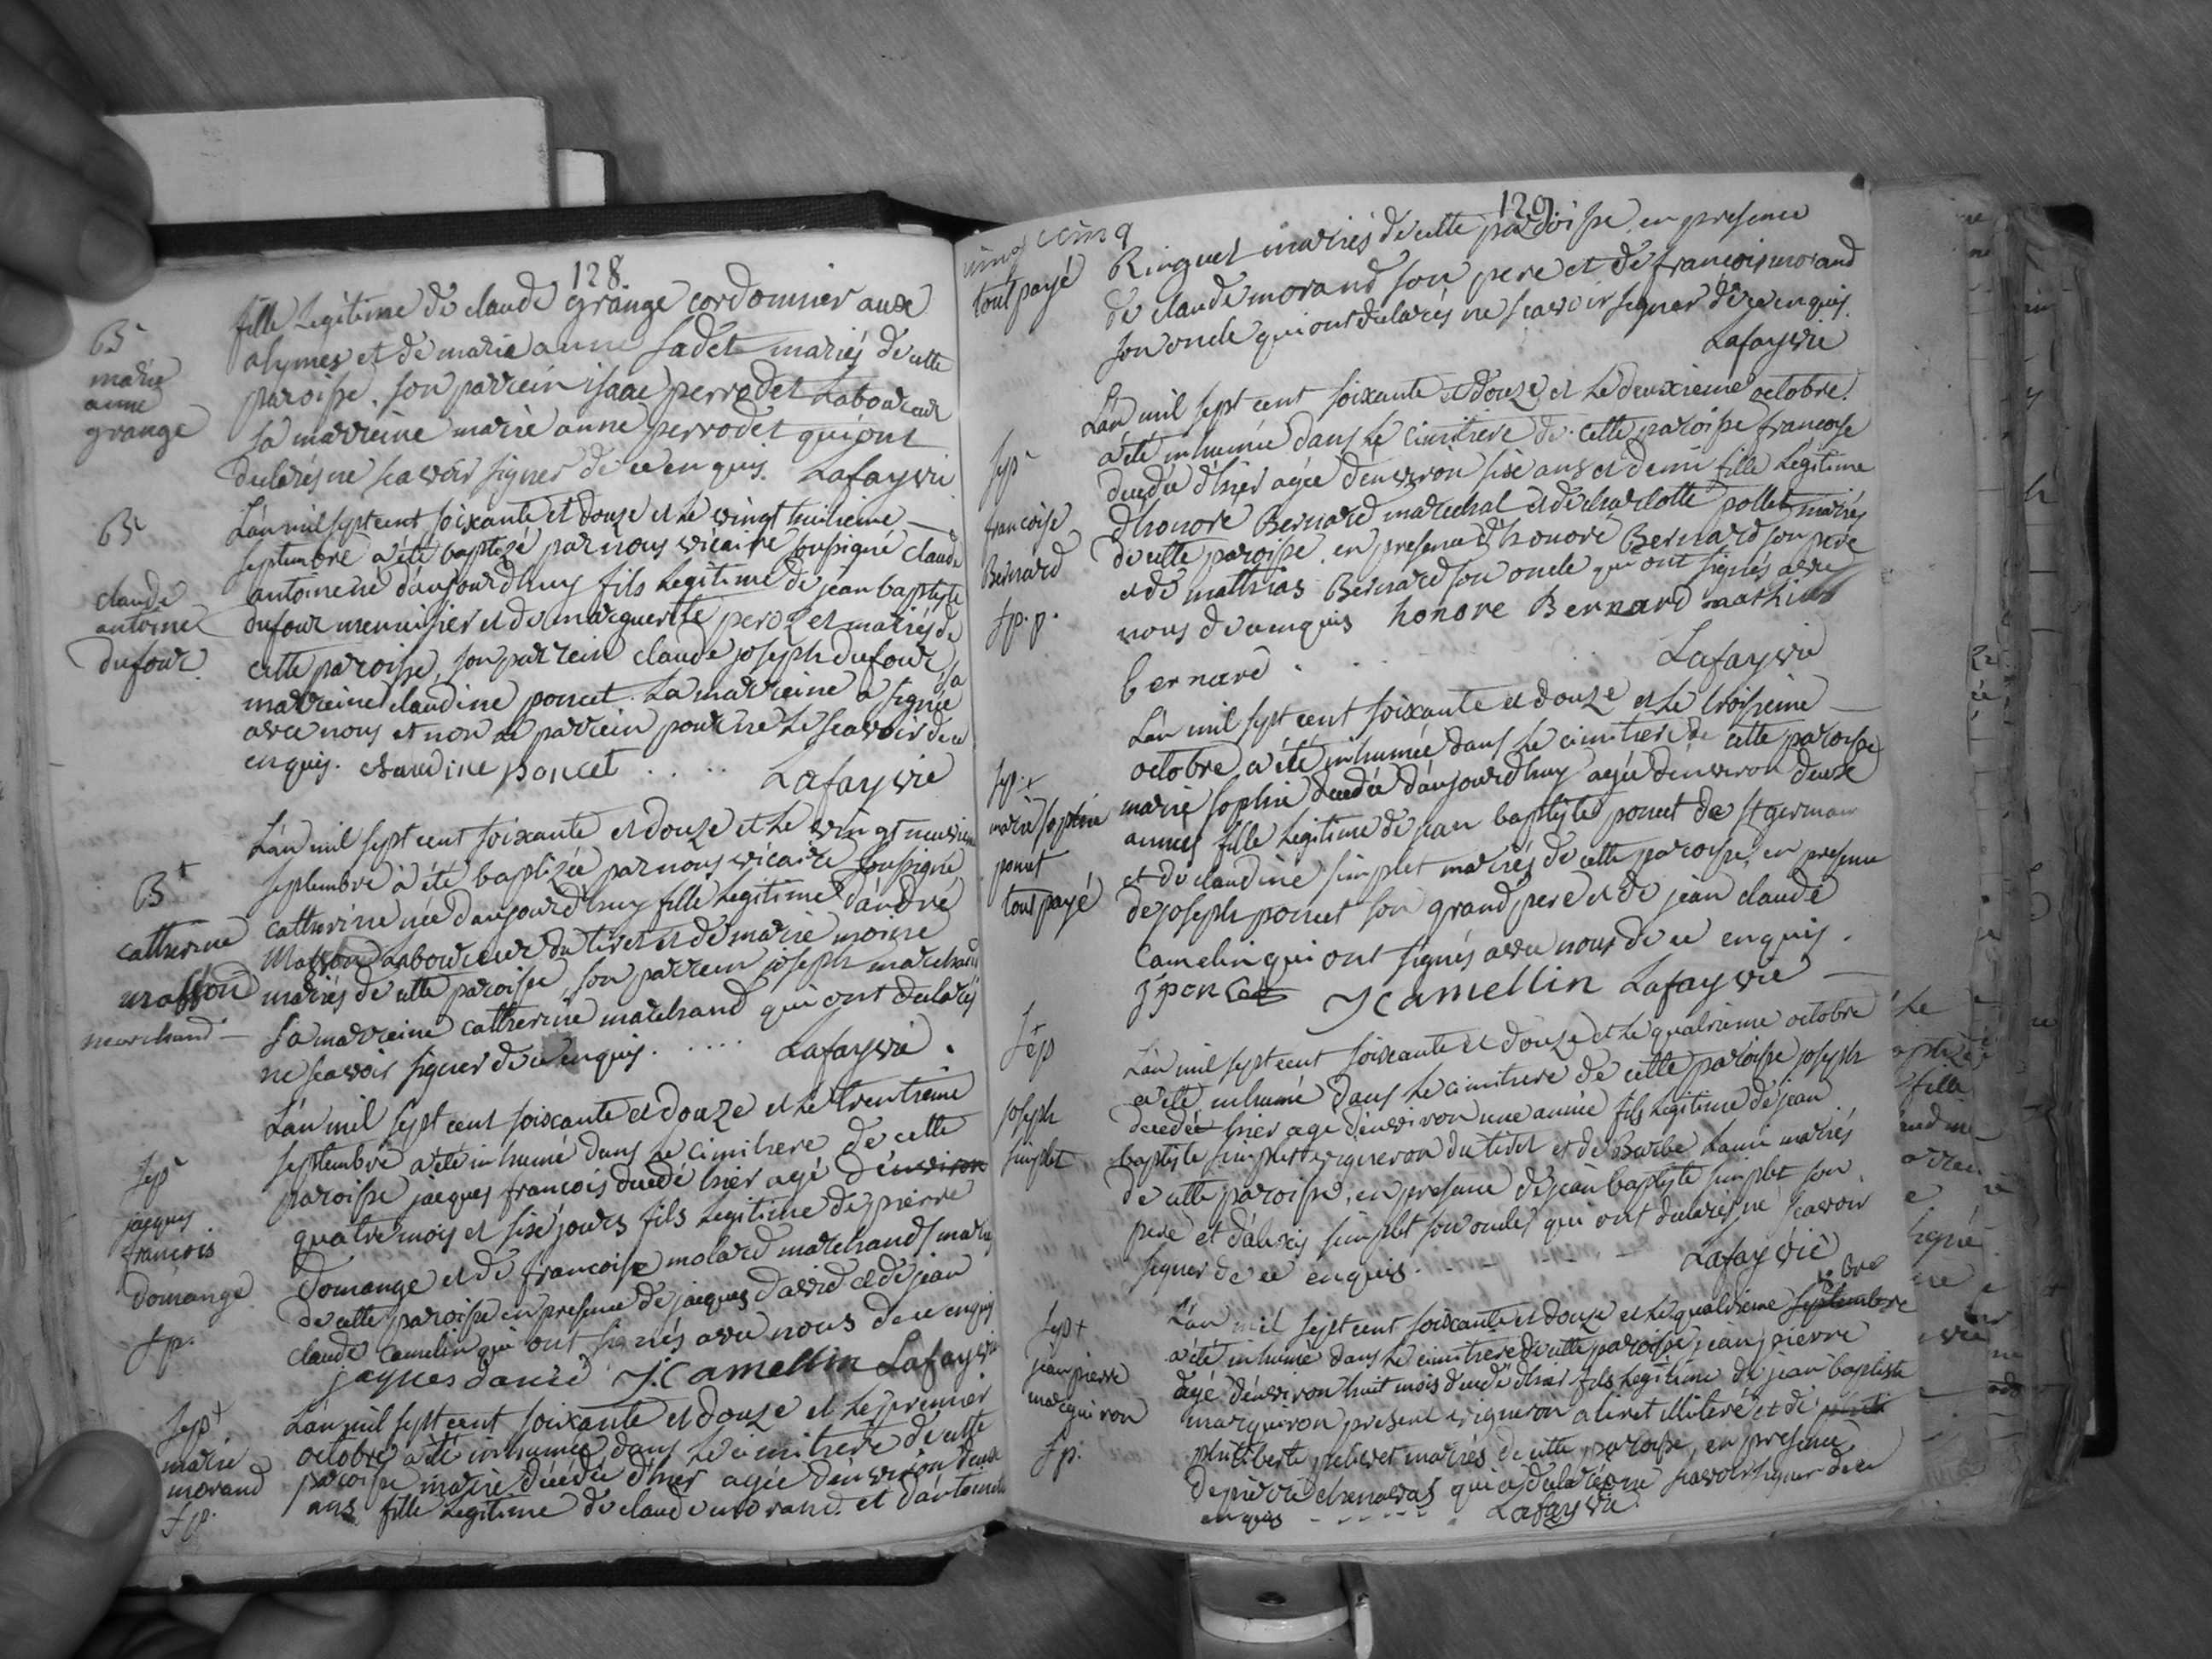 128
fille Legitime de claude grange cordonnier aux
alymes et de marie anne sadet mariés de cette
paroisse. son parrein isaac perrodet Laboureur
sa marreine marie anne perrodet qui ont
declarés ne scavoir signer de ce enquis. Lafayvie
Bt
marie
anne
grange
L'an mil sept cent soixante et douze et le vingt huitieme
septembre a été baptizé par nous vicaire soussigné claude
antoine né daujourdhuy fils Legitime de jean baptiste
dufour menuisier et de marguerite peroz et mariés de
cette paroisse, son parrein claude joseph dufour, sa
marreine claudine poncet. La marreine a signée
avec nous et non le parrein pour ne le scavoir de ce
enquis. claudine poncet .... Lafayvie
Bt
claude
antoine
dufour.
L'an mil sept cent soixante et douze et le vingt neuvieme
septembre à été baptizée par nous vicaire soussigné
catherine née daujourd'huy fille Legitime d'andré
Masson Laboureur du tiret et de marie moine
mariés de cette paroisse, son parrein joseph marchand
sa marreine catherine marchand qui ont declarés
ne scavoir signer de ce enquis. .... Lafayvie.
B+
catherine
masson
marchand
L'an mil sept cent soixante et douze et le trentieme
septembre a été inhumé dans le cimitiere de cette
paroisse jacques francois decedé hier agé d'environ
quatre mois et sixe jours fils Legitime de pierre
Domange et de francoise molard marchands mariés
de cette paroisse en presence de jacques david et de jean
claude Camelin qui ont signés avec nous de ce enquis
jaques david J.Camellin Lafayvie
Sep
jacques
francois
Domange
fp.
L'an mil sept cent soixante et douze et le premier
octobre a été inhumée dans le cimitiere de cette
paroisse marie décédée d'hier agée d'environ deux
ans fille Legitime de claude morand et d'antoinette
Sep+
marie
morand
fp.
129
vingt cinq
tout payé
Ringuet mariés de cette paroisse, en presence
de claude morand son pere et de francois morand
son oncle qui ont declarés ne scavoir signer de ce enquis.
Lafayvie
L'an mil sept cent soixante et douze, et le deuxieme octobre.
a été inhumée dans le cimitiere de cette paroisse francoise
decedée d'hier agée denviron sixe ans et demi fille Legitime
d'honoré Bernard marechal et de charlotte pollet mariés
de cette paroisse en presence d'honoré Bernard son pere
et de mathias Bernard son oncle qui ont signés avec
nous de ce enquis honore Bernard mathias
bernard. Lafayvie
Sep
francoise
Bernard
fp.p.
L'an mil sept cent soixante et douze et le troisieme
octobre a été inhumée dans le cimitiere de cette paroisse
marie sophie decedée daujourdhuy agée denviron deuxe
années fille Legitime de jean baptiste poncet de st germain
et de claudine simplet mariés de cette paroisse, en presence
de joseph poncet son grand pere et de jean claude
Camelin qui ont signés avec nous de ce enquis.
J poncet JCamellin Lafayvie
Sep+
marie sophie
poncet
tout payé
L'an mil sept cent soixante et douze et le quatrieme octobre
a été inhumé dans le cimitiere de cette paroisse joseph
decedé hier agé denviron une année fils Legitime de jean
baptiste simplet vigneron du tiret et de Barbe Lanné mariés
de cette paroisse, en presence de jean baptiste simplet son
pere et d'alexis simplet son oncle qui ont declarés ne scavoir
signer de ce enquis. Lafayvie
Sep
joseph
simplet
L'an mil sept cent soixante et douze et le quatrieme septembre 8bre
a été inhumé dans le cimitiere de cette paroisse jean pierre
agé denviron huit mois decedé d'hier fils Legitime de jean baptiste
marguiron present vigneron a tiret illiteré et de
philiberte pelievet mariés de cette paroisse, en presence
de pierre chenavas qui a declaré ne scavoir signer de ce
enquis Lafayvie
Sep+
jean pierre
marguiron
fp.